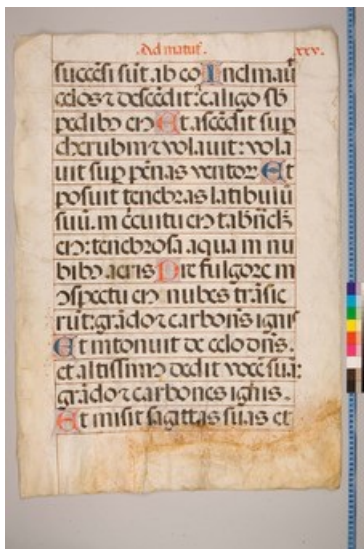 Ad matuť.
xxv.
succēsi sūt. ab eo Inclinauͭ
celos ⁊ descēdit: caligo sb̄
pedibꝰ eiꝰ Et ascēdit sup̄
cherubim ⁊ volauit: vola
uit sup̄ pēnas ventoꝝ Et
posuit tenebras latibulū
suū. in cͥcuitu eiꝰ tab̄nacl̄m
eiꝰ: tenebrosa aqua in nu
bibꝰ aeris Pre fulgore in
ꝯspectu eiꝰ nubes trāsie
rūt: grādo ⁊ carboēs ignis
Et intonuit de celo dn̄s.
et altissimꝰ dedit vocē suā:
grādo ⁊ carbones ignis.
Et misit sagittas suas et